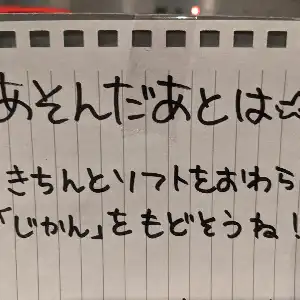 あそんだあとは☆
きちんとソフトをおわら
「じかん」をもどそうね!